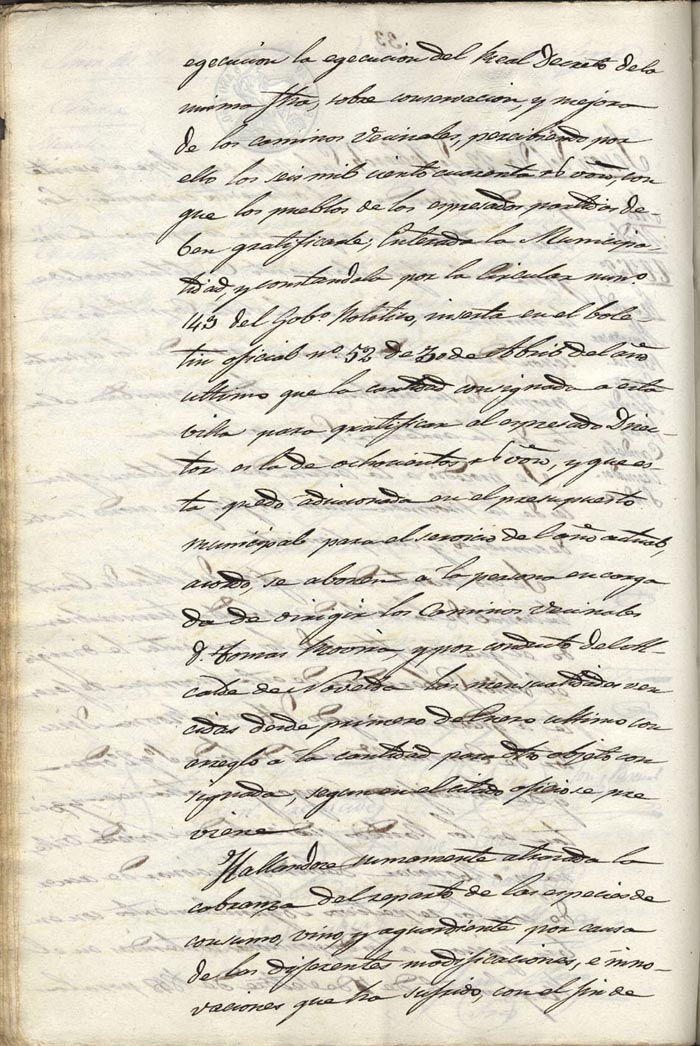 egecucion la egecucion del Real Decreto de la
misma fha, sobre conservacion y mejora
de los caminos vecinales, percibiendo por
ello los seis mil ciento cuarenta rs von, con
que los pueblos de los espresados partidos de-
ben gratificarle; Enterada la Municipa
lidad, y constandola por la Circular num.º
143 del Gob.º Politico, inserta en el bole-
tin oficial nº. 52 de 30 de Abril del año
ultimo que la cantidad consignada a esta
villa para gratificar al espresado Direc-
tor es la de ochocientos rs von, y que es-
ta quedo adicionada en el presupuesto
municipal para el servicio del año actual,
acordó, se abonen a la persona encarga
da de dirigir los Caminos vecinales
D. Tomas y por conducto del Al-
calde de Novelda las mensualidades ven
cidas desde primero de Enero ultimo con
arreglo a la cantidad para dho objeto con
signada, segun en el citado oficio se pre
viene
Hallandose sumamente atrasada la
cobranza del reparto de las especies de
consumo, vino, y aguardiente por causa
de las diferentes modificaciones, é inno-
vaciones que ha sufrido, con el fin de